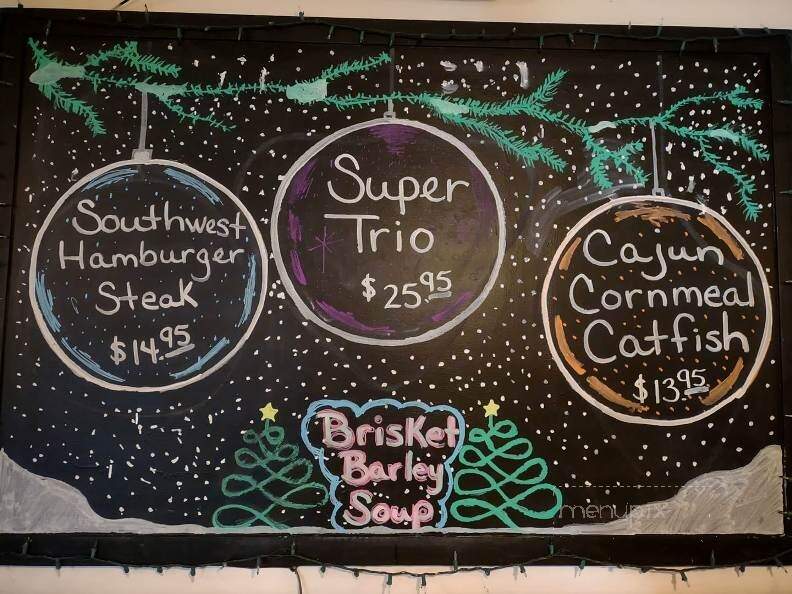 Southwest
Hamburger
Steak
$14.95
Super
Trio
$25.95
Cajun
Cornmeal
Catfish
$13.95
Brisket
Barley
Soup
menupix